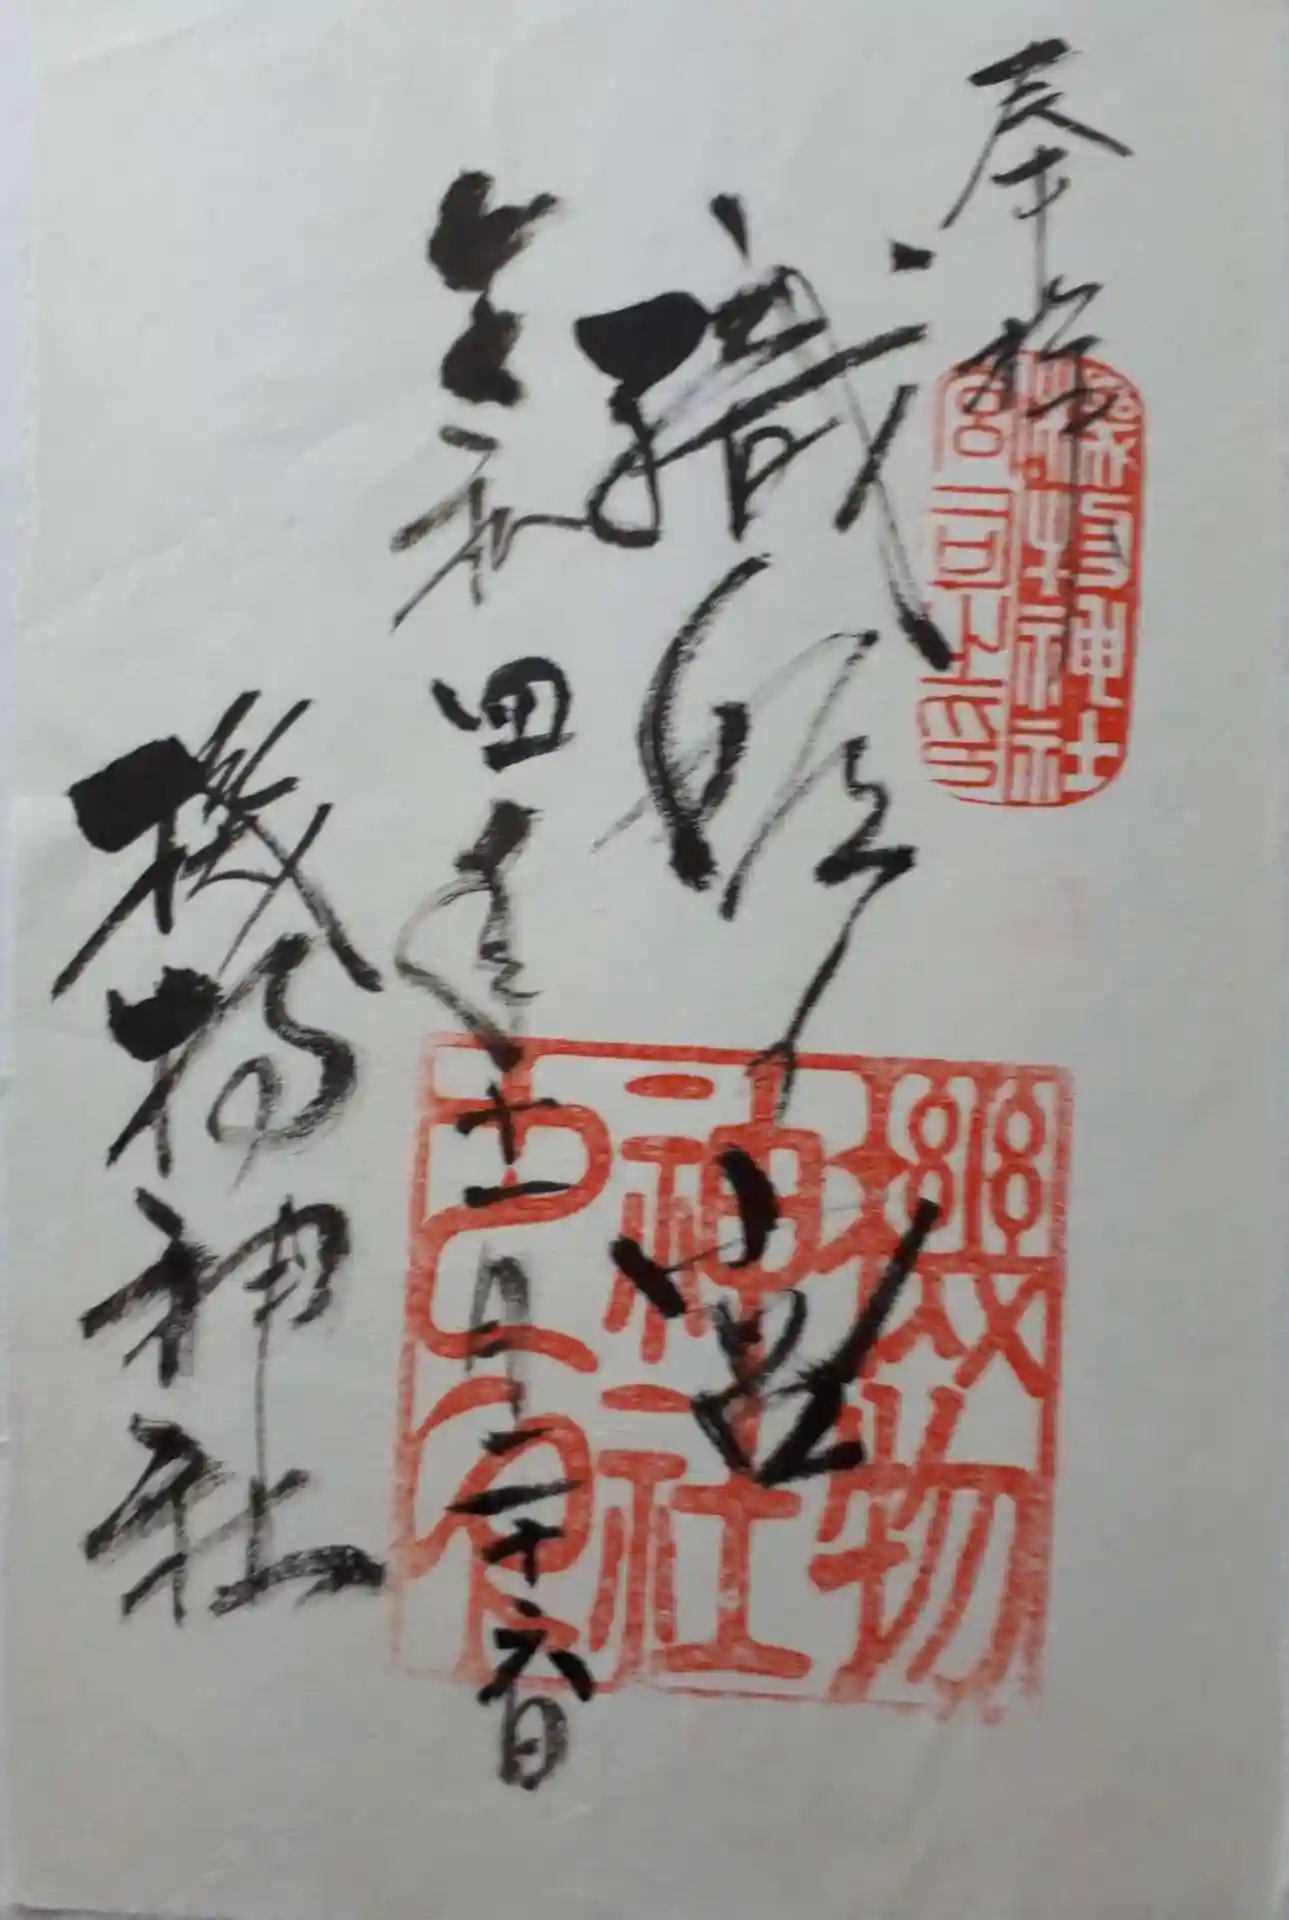 奉拝
織姫ノ宮
令和四年十一月二十六日
機物神社
機物
神社
之印
宮司之印